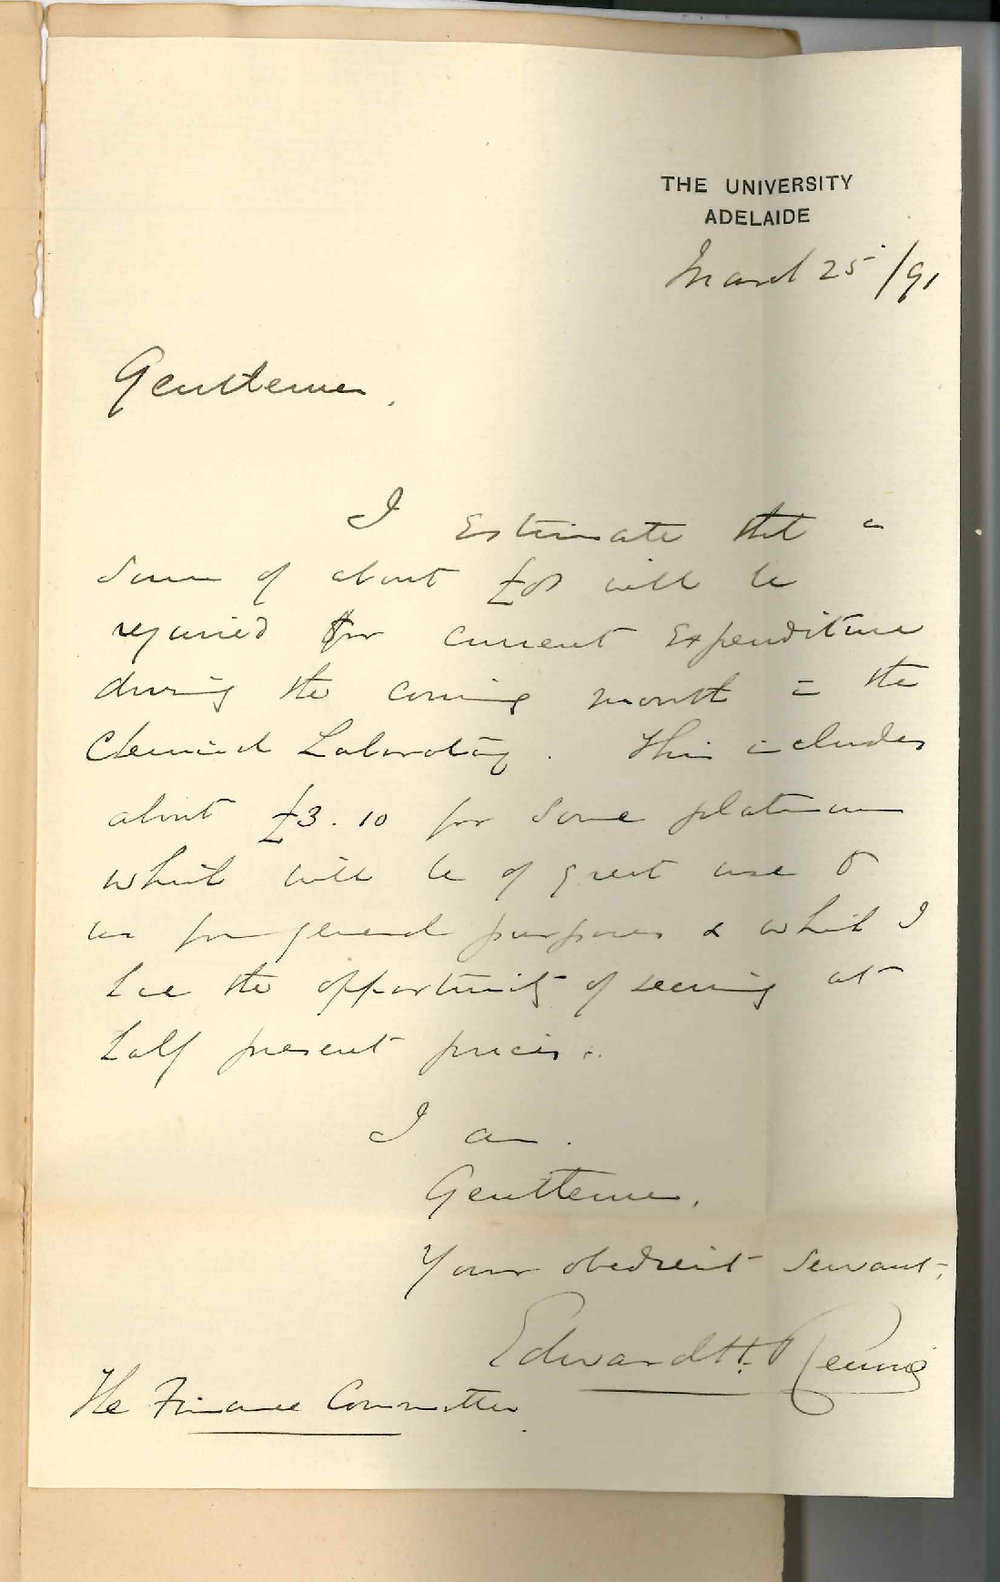 THE UNIVERSITY
ADELAIDE
March 25/91
Gentlemen,
I Estimate that a
Sum of about £8 will be
required for current Expenditure
during the coming month in the
Chemical Laboratory. This includes
about £3.10 for some platinum
which will be of great use to
us for general purposes & which I
have the opportunity of securing at
half present prices.
I am.
Gentlemen,
Your obedient Servant,
Edward H. Rennie
The Finance Committee.